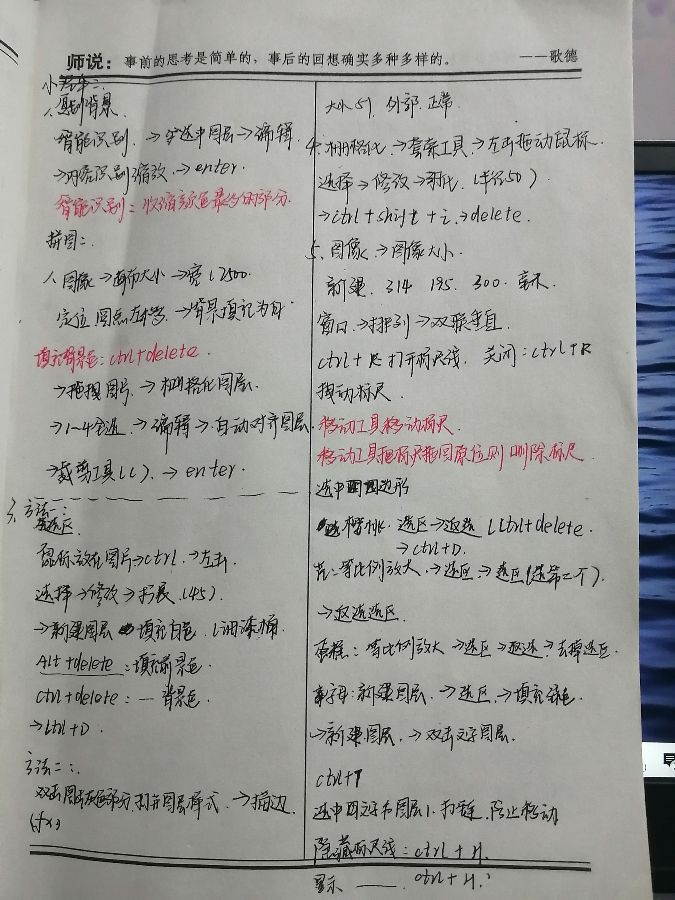 师说：事前的思考是简单的，事后的回想确实多种多样的。 ——歌德
智能识别，→选中图层→编辑
→内容识别缩放，→enter.
智能识别：收缩颜色最少的部分.
拼图二：
1、图像→画布大小→宽(2500.
→背景填充为白.
填充背景色：ctrl+delete.
→拖拽图片，→栅格化图层.
→1~4全选→编辑→自动对齐图层.
→裁剪工具(C)，→enter.
3、方法一：
选区.
鼠标放在图片→ctrl，→左击
选择→修改→扩展.(45).
→新建图层 填充白色.(油漆桶
Alt+delete：填充前景色.
ctrl+delete：— 背景色
→ctrl+D.
方法二：
双击图层 部分.打开图层样式，→描边.
(fx)
大小51，外部.正常.
4、栅格化，→套索工具，→左击拖动鼠标.
选择→修改→羽化.(半径50)
→ctrl+shift+i，→delete.
5、图像，→图像大小.
新建. 314 195. 300. 毫米.
窗口，→排列→双联垂直.
ctrl+R 打开标尺线，关闭：ctrl+R
拽动标尺.
移动工具移动标尺.
移动工具把标尺拖回原位则删除标尺.
选中四边形
选区→反选(ctrl+delete.
→ctrl+D.
等比例放大，→选区，→选区(选第二个).
→反选选区.
蛋糕：等比例放大→选区→反选，→去掉选区.
字母：新建图层，→选区，→填充颜色.
→新建图层，→双击文字图层.
ctrl+T
选中文字和图层1，扣链，防止移动
隐藏标尺线：ctrl+H.
显示 —— ctrl+H.